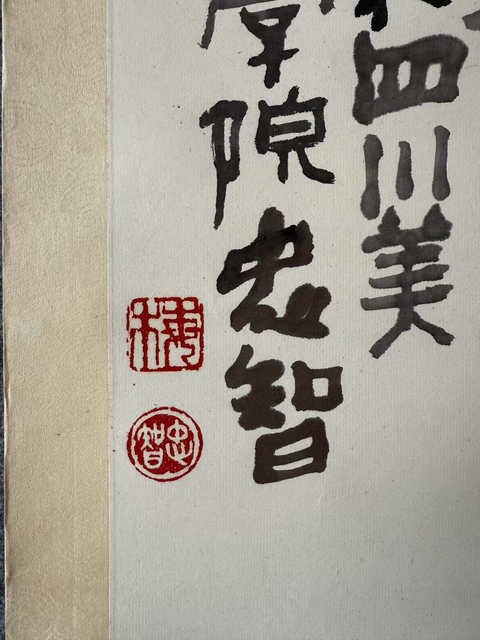 四川美
学院忠智
忠智